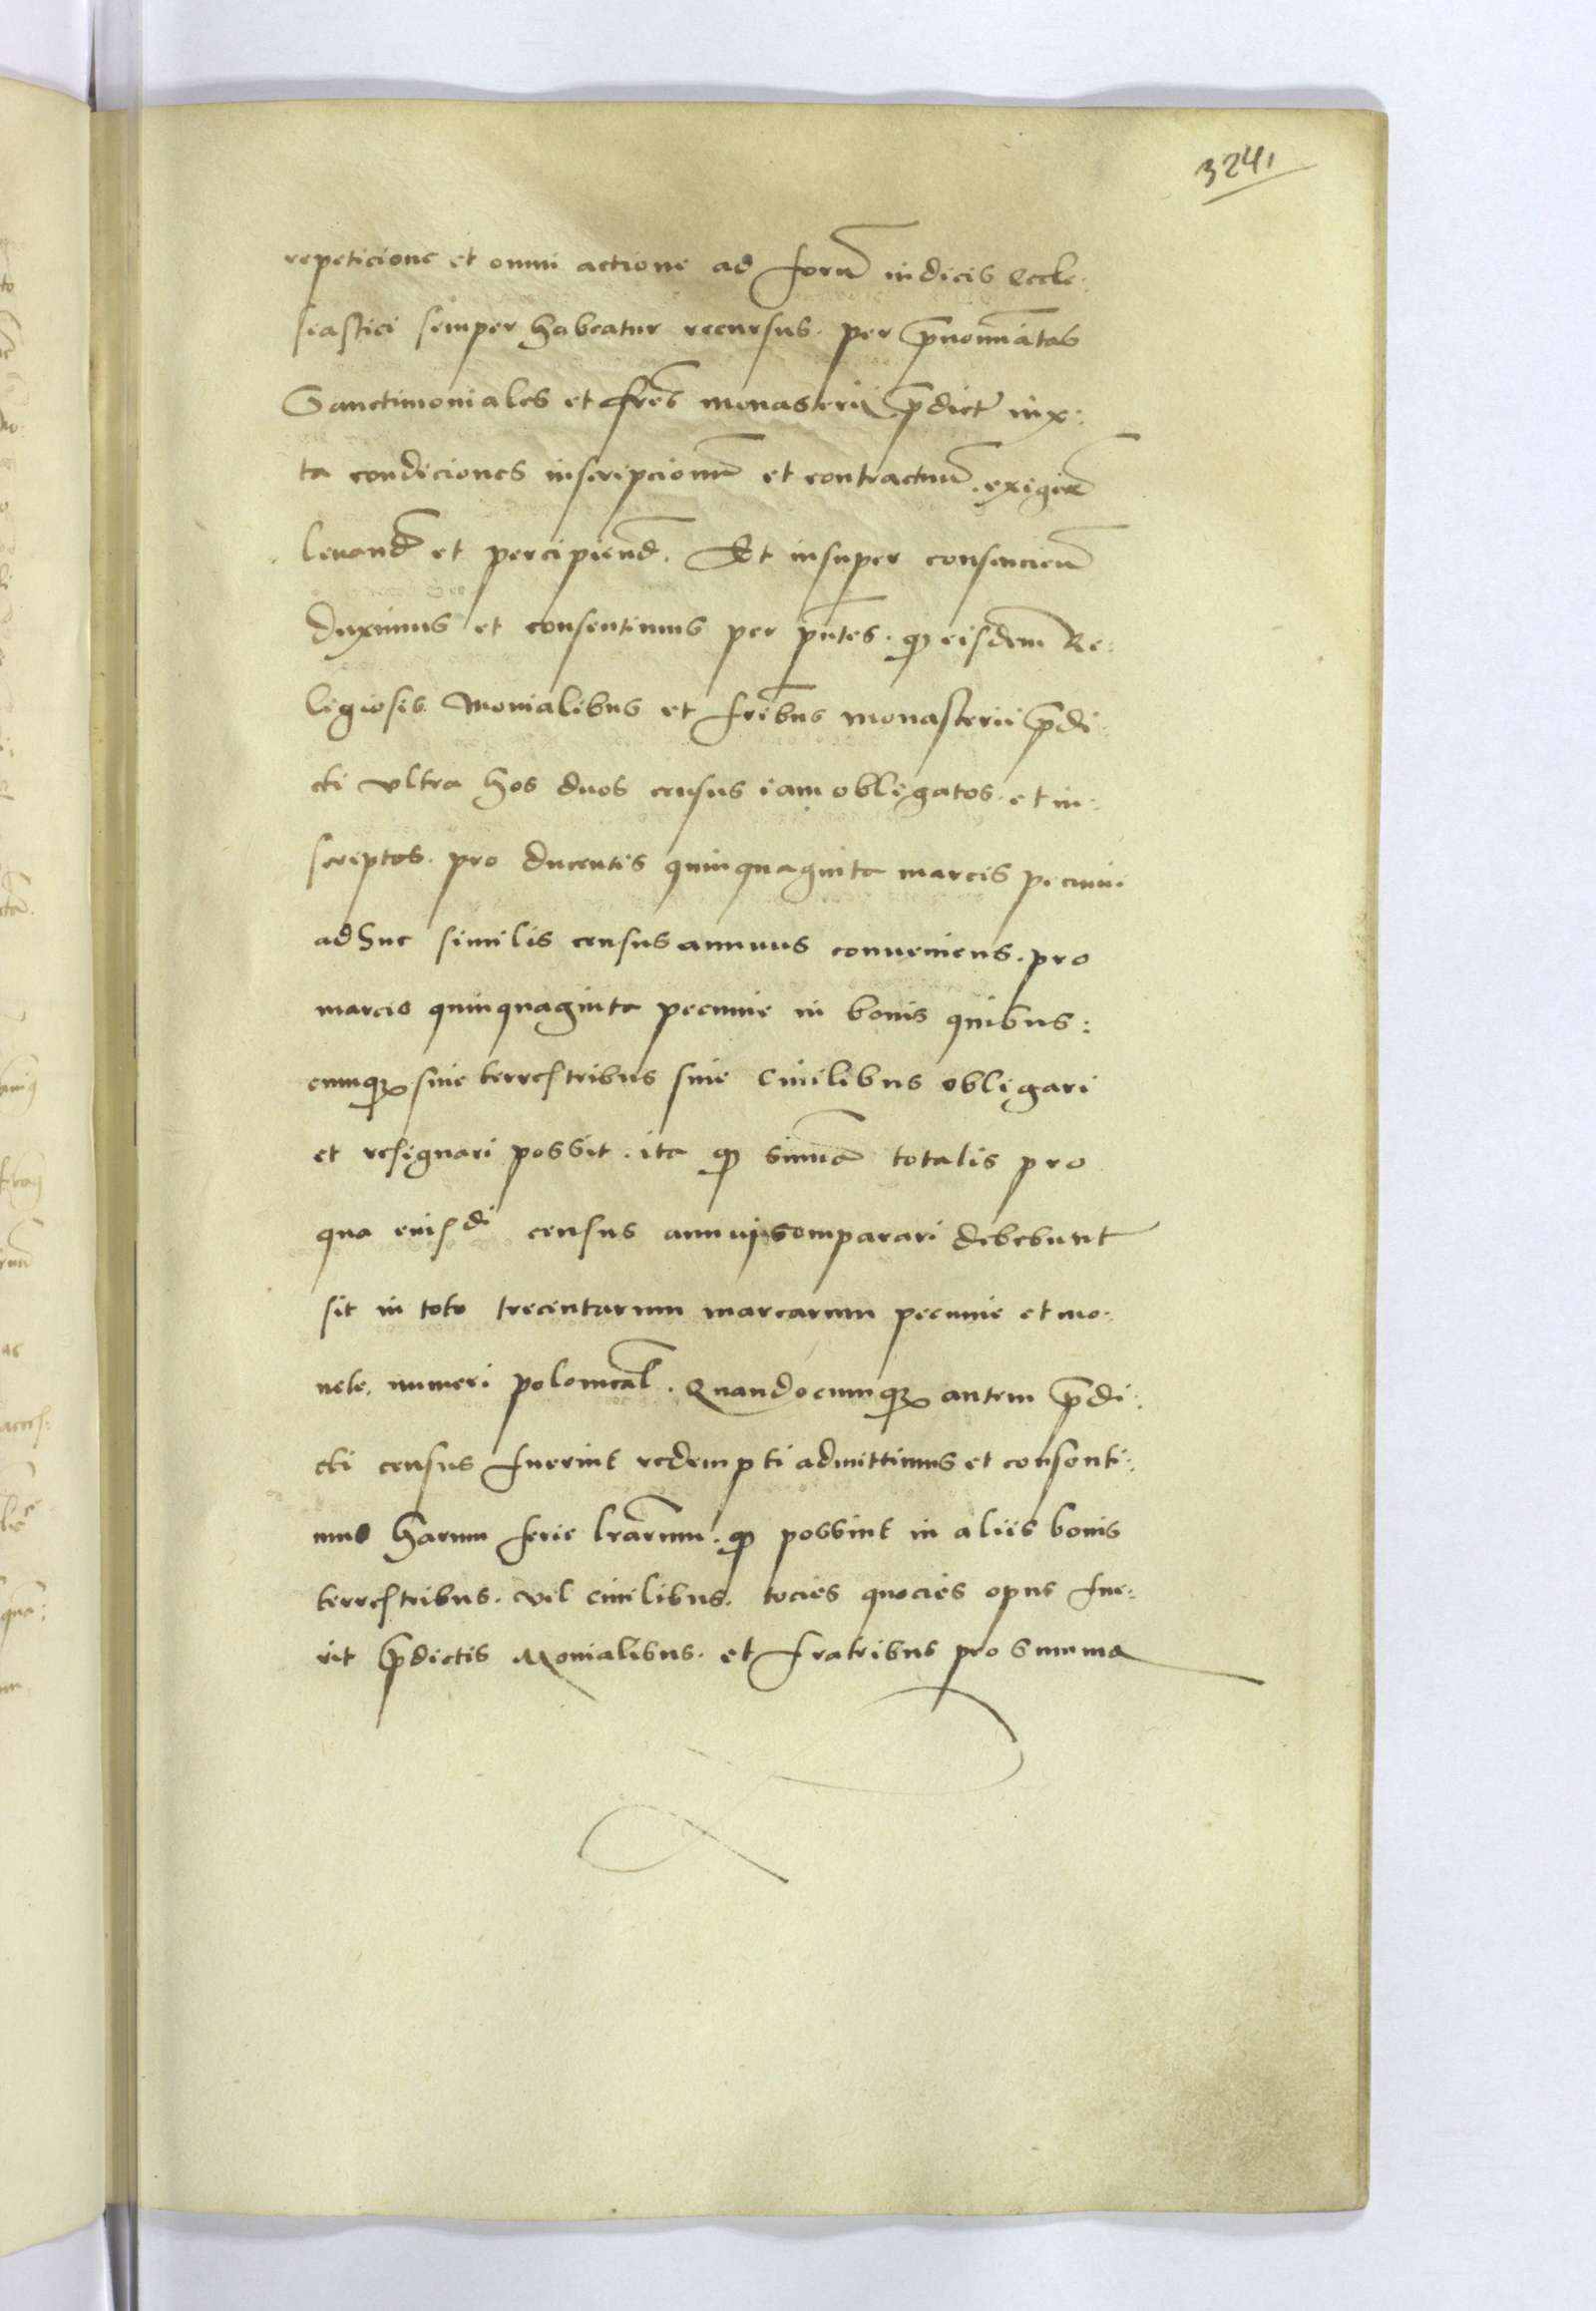 324,
repeticione et omni actione ad forū iudicis Eccle:
siastici semper habeatur recursus. per p̄nomīatas
Sanctimoniales et fr̄es monasterij p̄dict iux:
ta condiciones inscripcionū et contractuū. exigen̄
leuand̄ et percipiend̄. Et insuper consencien̄
duximus et consentimus per p̄ntes. qꝫ eisdem Re:
ligiosis Monialibus et fr̄ibus monasterii p̄di:
cti vltra hos duos census iam obligatos. et in:
scriptos. pro ducentis quinquaginta marcis pecunie
adhuc similis census annuus conueniens. pro
marcis quinquaginta pecunie in bonis quibus:
cumqꝫ siue terrestribus siue Ciuilibus obligari
et resignari possit. ita qꝫ sum̄a totalis pro
qua euisdi census annui comparari debebunt
sit in toto trecentarum marcarum pecunie et mo:
nete. numeri polonical̄. Quandocumqꝫ autem p̄di:
cti census fuerint redempti admittimus et consenti:
mus harum serie lr̄arum. qꝫ possint in aliis bonis
terrestribus. vel ciuilibus. tocies quocies opus fue:
rit p̄dictis Monialibus. et fratribus pro summa